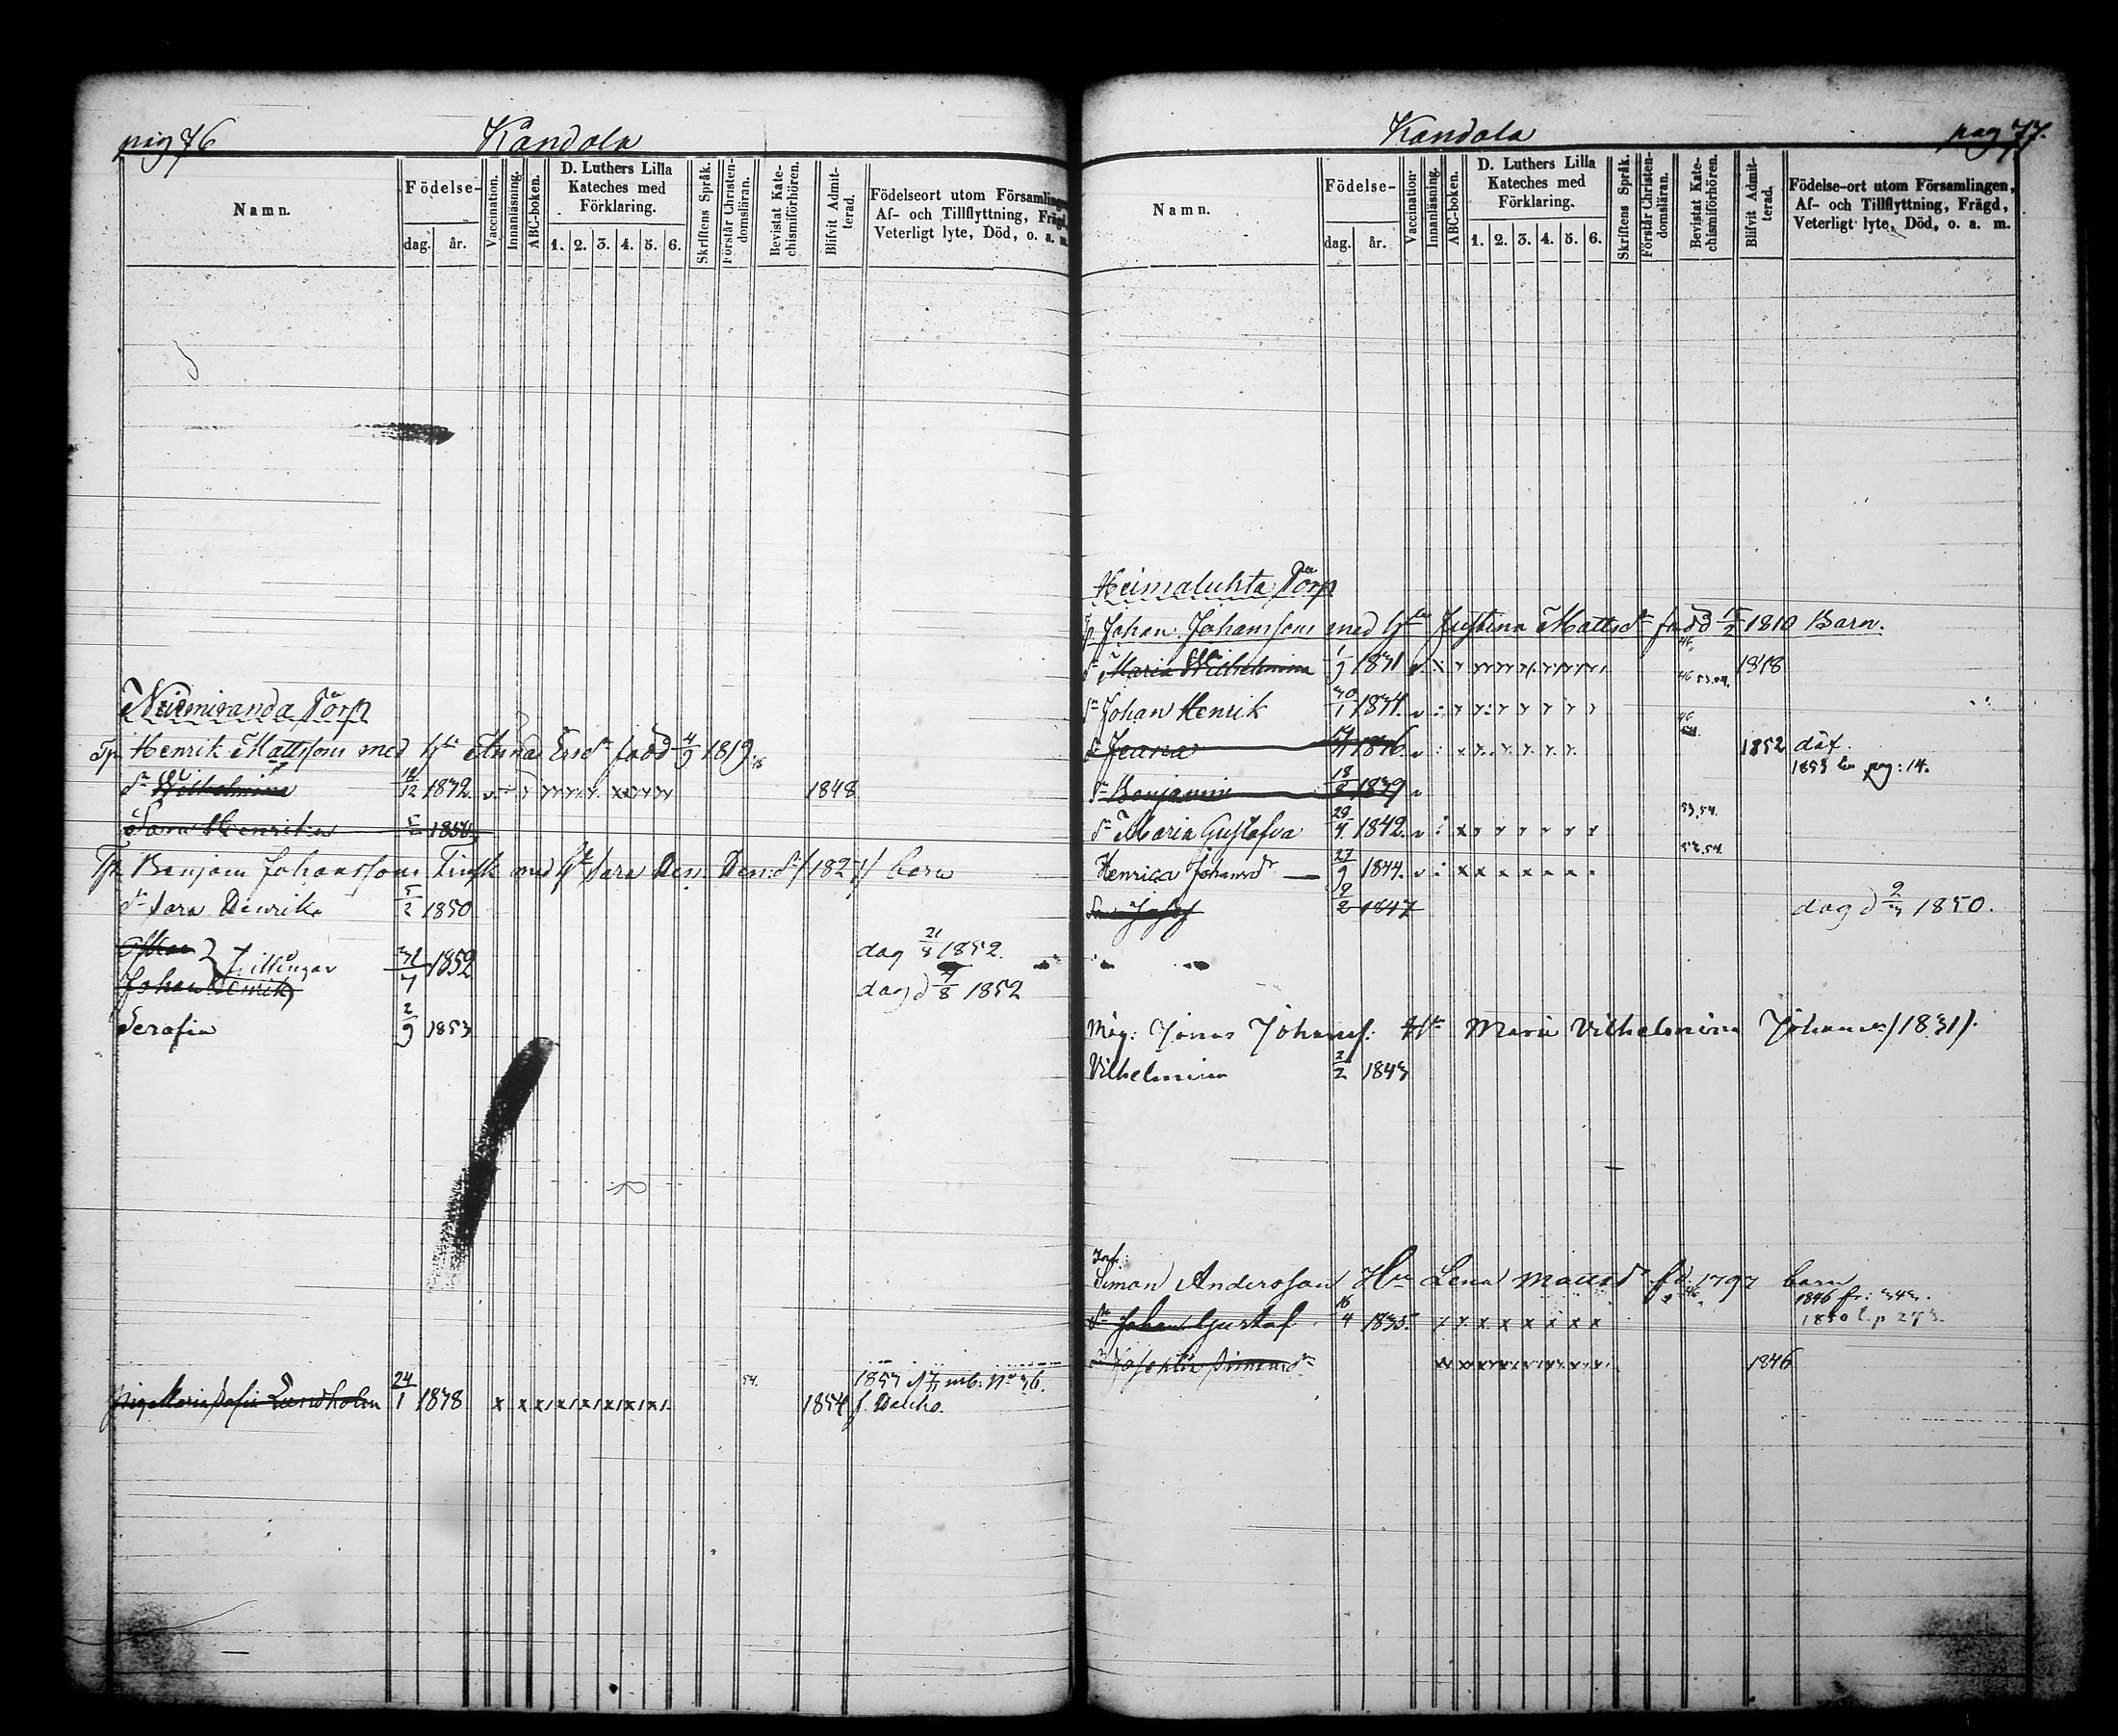 pag 76 Kandola
Namn. Födelse- dag. år. Vaccination. Innanläsning. ABC-boken. D. Luthers Lilla Kateches med Förklaring. 1. 2. 3. 4. 5. 6. Skriftens Språk. Förstår Christen-domsläran. Bevistat Kate-chismiförhören. Blifvit Admit-terad. Födelseort utom Församlingen, Af- och Tillflyttning, Frägd, Veterligt lyte, Död, o. a. m.
Neidmiranda Torp
Tp. Henrik Mattsson med Hu Anna född 4/9 1819
Dr Wilhelmina 18/12 1832 1848
Sara Henrika 5/2 1850
Tp. Benjam Johansson med Hu Sara /1827/ barn
Dr Sara Henrika 5/2 1850
Tvillingar 31/7 1852 dog 21/8 1852.
Johan Henrik dog d 7/8 1852
Serafia 2/9 1853
24/1 1838 Lundholm 1854
pag 77. Kandola
Namn. Födelse- dag. år. Vaccination. Innanläsning. ABC-boken. D. Luthers Lilla Kateches med Förklaring. 1. 2. 3. 4. 5. 6. Skriftens Språk. Förstår Christen-domsläran. Bevistat Kate-chismiförhören. Blifvit Admit-terad. Födelse-ort utom Församlingen, Af- och Tillflyttning, Frägd, Veterligt lyte, Död, o. a. m.
Heimalukta Torp
Tp. Johan Johansson med Hu Justina Mattsdr född 1810 Barn.
Dr Maria Wilhelmina 1/9 1831 1848
Sn Johan Henrik 30/1 1834
1836 1852
1853 pag: 14.
Sn Benjamin 18/2 1839
Dr Maria Gustafva 29/4 1842 53.54.
Henrica Johansdr 27/9 1844 53.54.
Josef 2/2 1847 dog d 9/3 1850.
Måg: Jonas Johanss: Hu Maria Vilhelmina Johansdr /1831/.
Vilhelmina 2/2 1843
Simon Andersson Hu Lena Mattsdr fd 1797 barn
Sn Johan Gustaf 16/4 1835 1846 fr:
1850
Josephin Simonsdr 1846